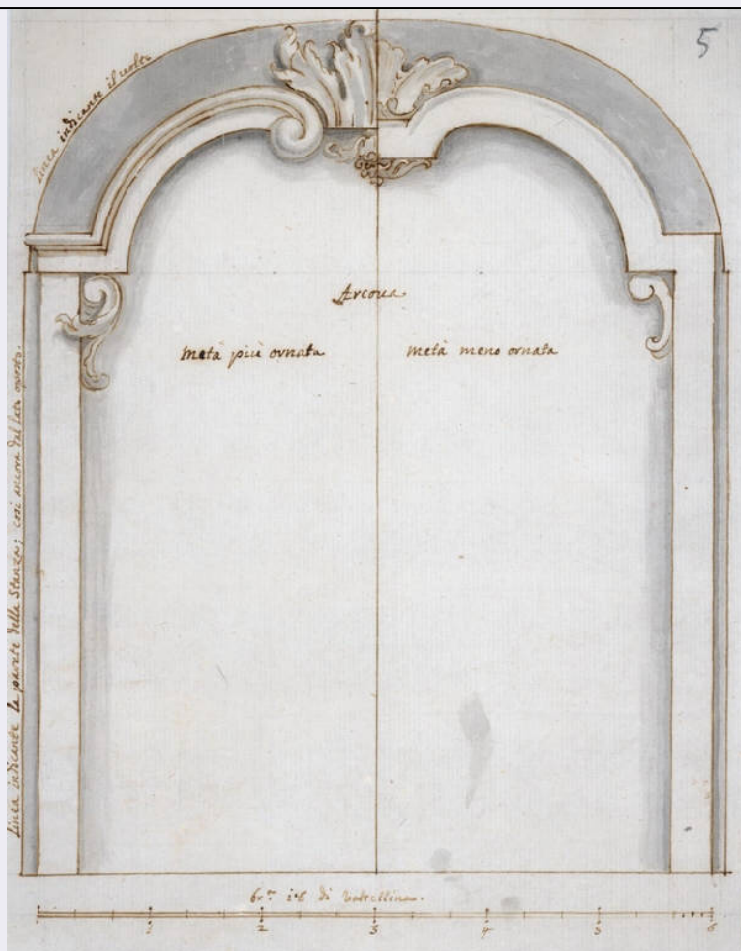 5
Linea indicante il volto
Arcova
Metà più ornata
metà meno ornata
Linea indicante la parete della Stanza; così ancora dal lato opposto.
di Valtellina.
1 2 3 4 5 6